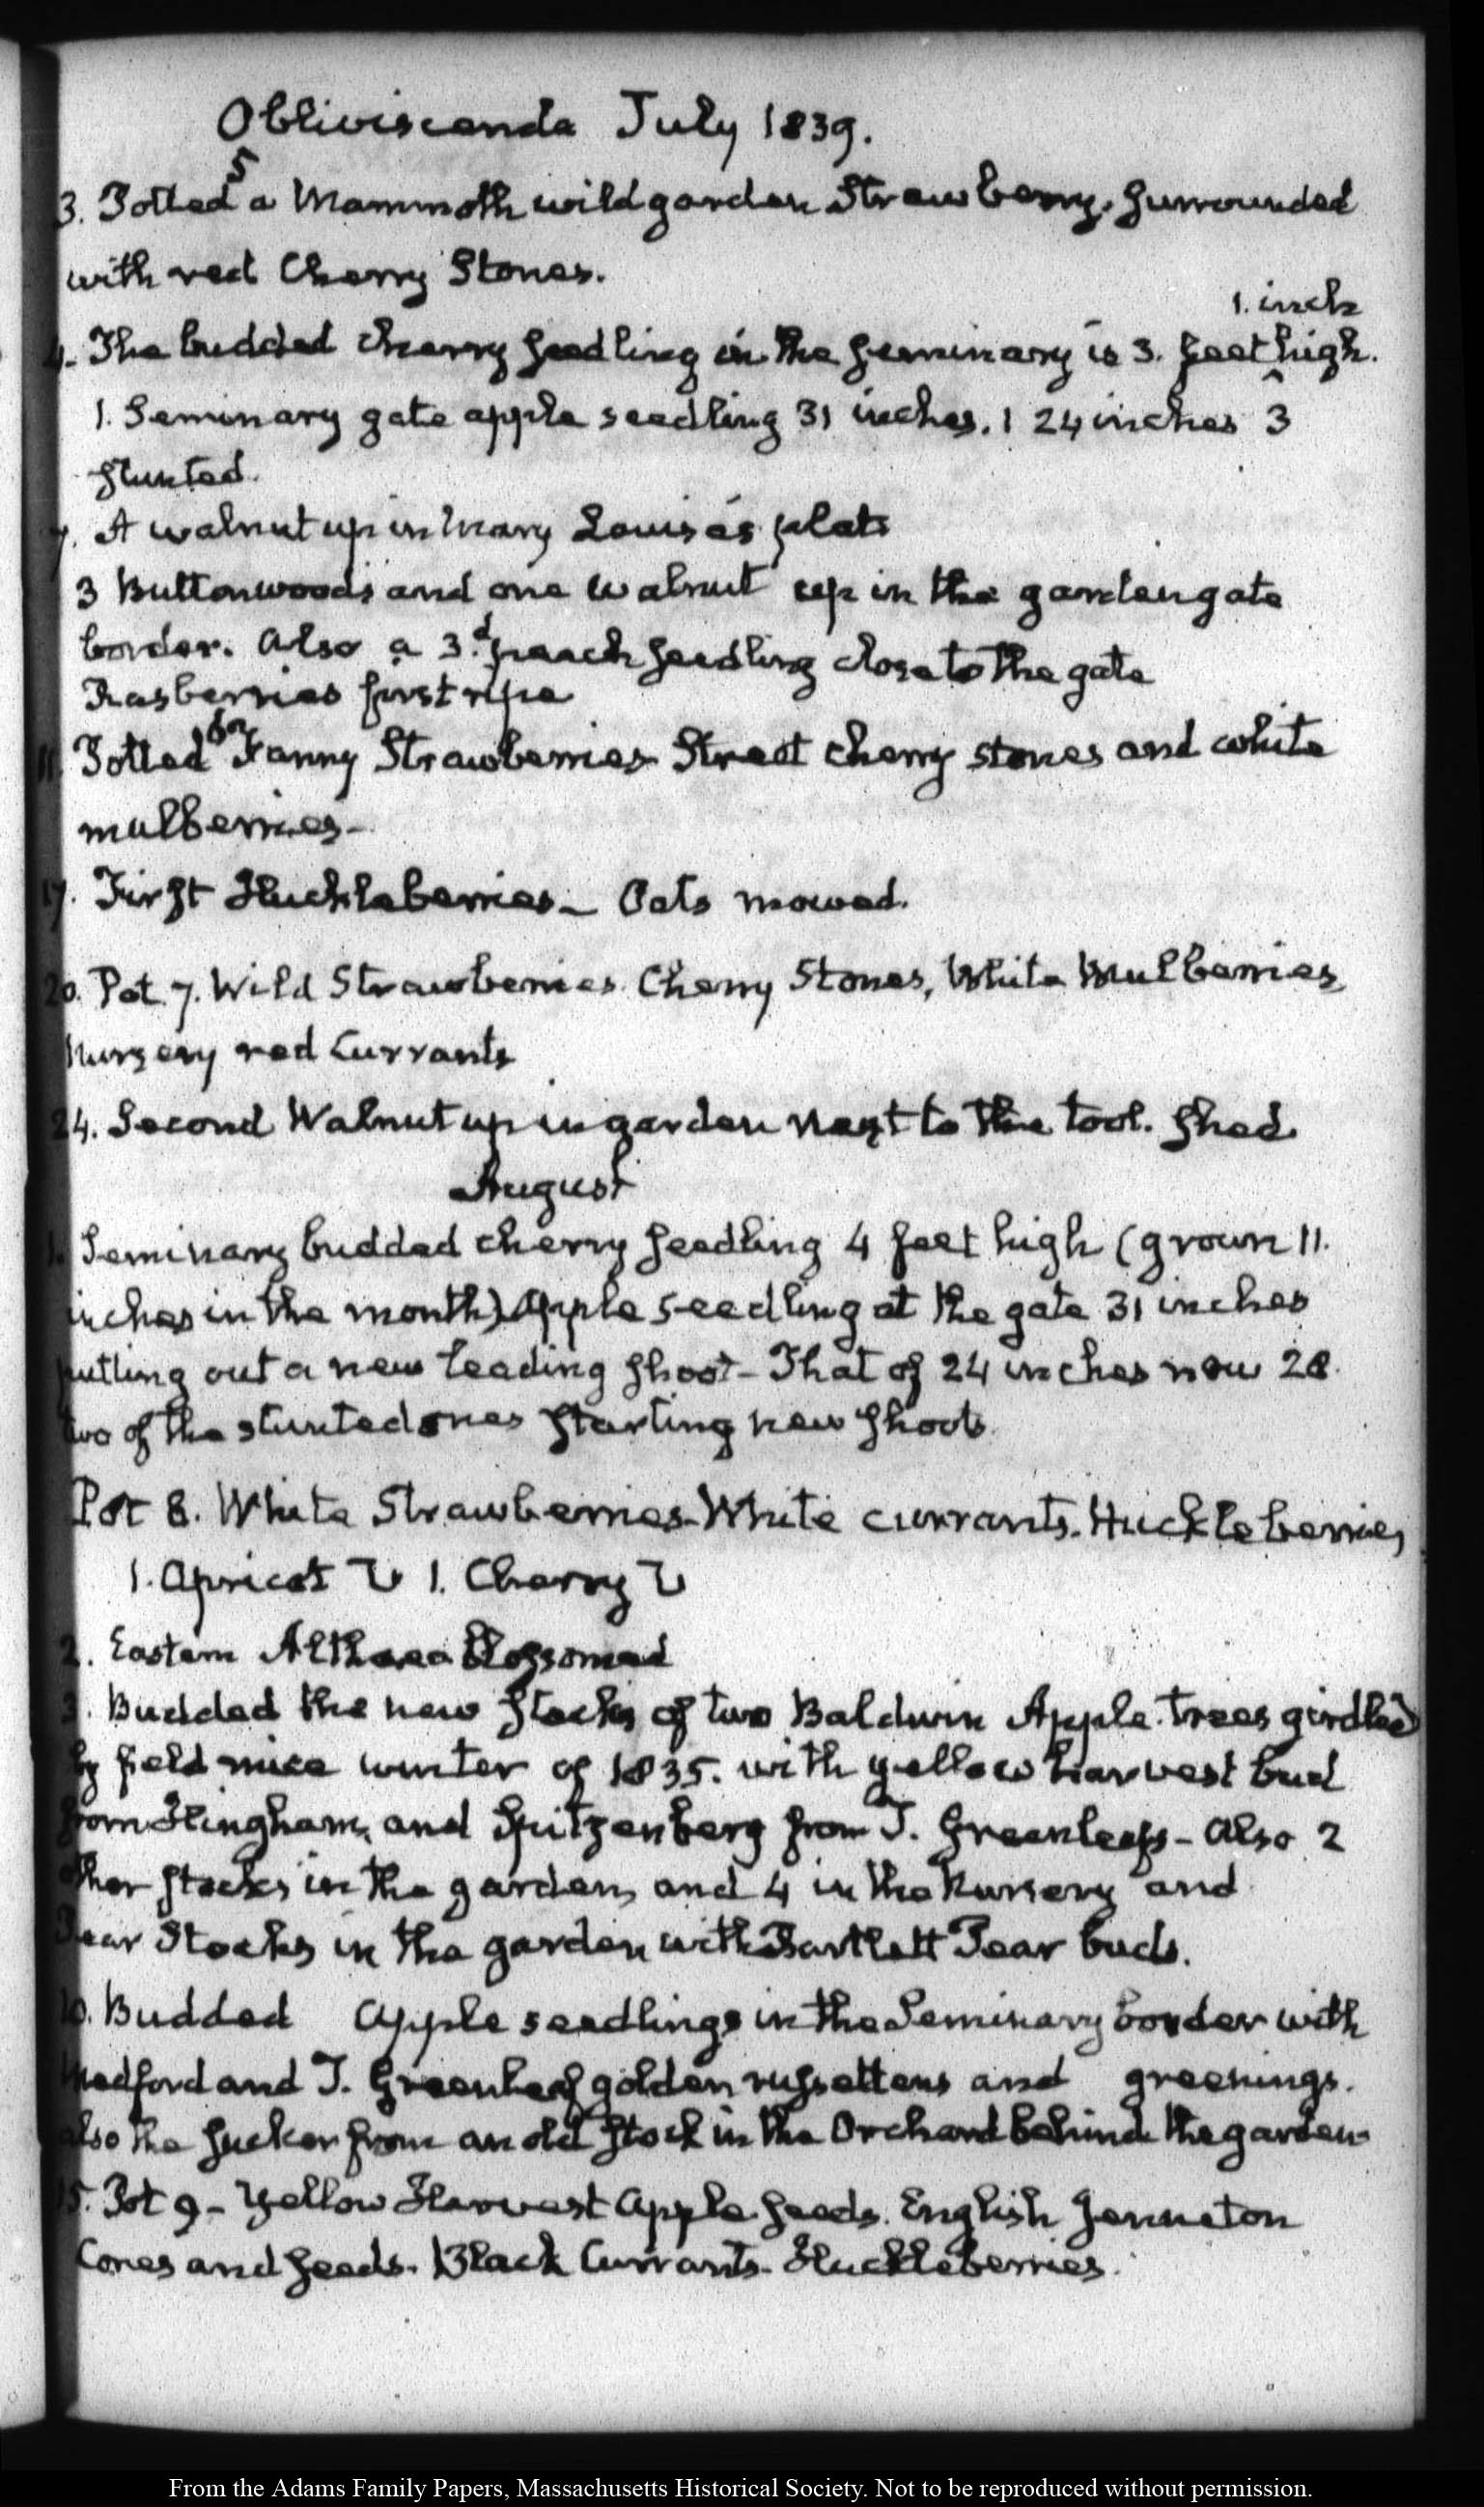 Obliviscenda July 1839.
3. Potted 5 a Mammoth wild garden Strawberry. Surrounded
with red Cherry Stones.
1. inch
4. The budded cherry seedling in the Seminary is 3. feet ^ high.
1. Seminary gate apple seedling 31 inches. 1 24 inches 3
stunted.
7. A walnut up in Mary Louisa's plat
3 Buttonwoods and one walnut up in the garden gate
border. Also a 3.d peach seedling close to the gate
Rasberries first ripe
11. Potted 6 Fanny Strawberries Street cherry stones and white
mulberries—
17. First Huckleberries— Oats mowed.
20. Pot 7. Wild Strawberries. Cherry Stones, White Mulberries,
Nursery red Currants
24. Second Walnut up in garden next to the tool. shed.
August
1. Seminary budded cherry seedling 4 feet high (grown 11.
inches in the month) Apple seedling at the gate 31 inches
putting out a new leading shoot— That of 24 inches now 28.
two of the stunted ones starting new shoots.
Pot 8. White Strawberries— White currants. Huckleberries
1. Apricot 1. Cherry
2. Eastern Althaea blossomed
3. Budded the new stocks of two Baldwin Apple. trees girdled
by field mice winter of 1835. with yellow harvest bud
from Hingham, and Spitzenberg from T. Greenleafs— Also 2
other stocks in the garden, and 4 in the Nursery and
Pear Stocks in the garden with Bartlett Pear buds.
10. Budded Apple seedlings in the Seminary border with
Medford and T. Greenleaf golden russettens and greenings.
also the sucker from an old stock in the Orchard behind the garden
15. Pot 9— Yellow Harvest Apple seeds. English Jenneton
Cores and seeds. Black Currants. Huckleberries.
From the Adams Family Papers, Massachusetts Historical Society. Not to be reproduced without permission.